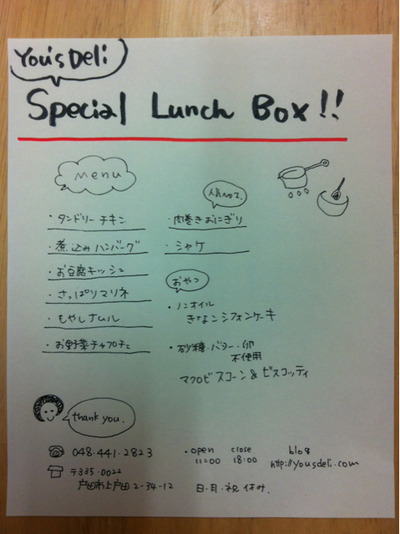 You's Deli
Special Lunch Box!!
menu
・タンドリーチキン
・煮込みハンバーグ
・お豆腐キッシュ
・さっぱりマリネ
・もやしナムル
・お野菜チャプチェ
・肉巻きおにぎり
・シャケ
おやつ
・ノンオイル
きなこシフォンケーキ
・砂糖・バター・卵
不使用
マクロビスコーン&ビスコッティ
thank you.
☎ 048.441.2823
〒335.0022
戸田市上戸田2-34-12
・open close
11:00 18:00
日・月・祝 休み.
blog
http://yousdeli.com